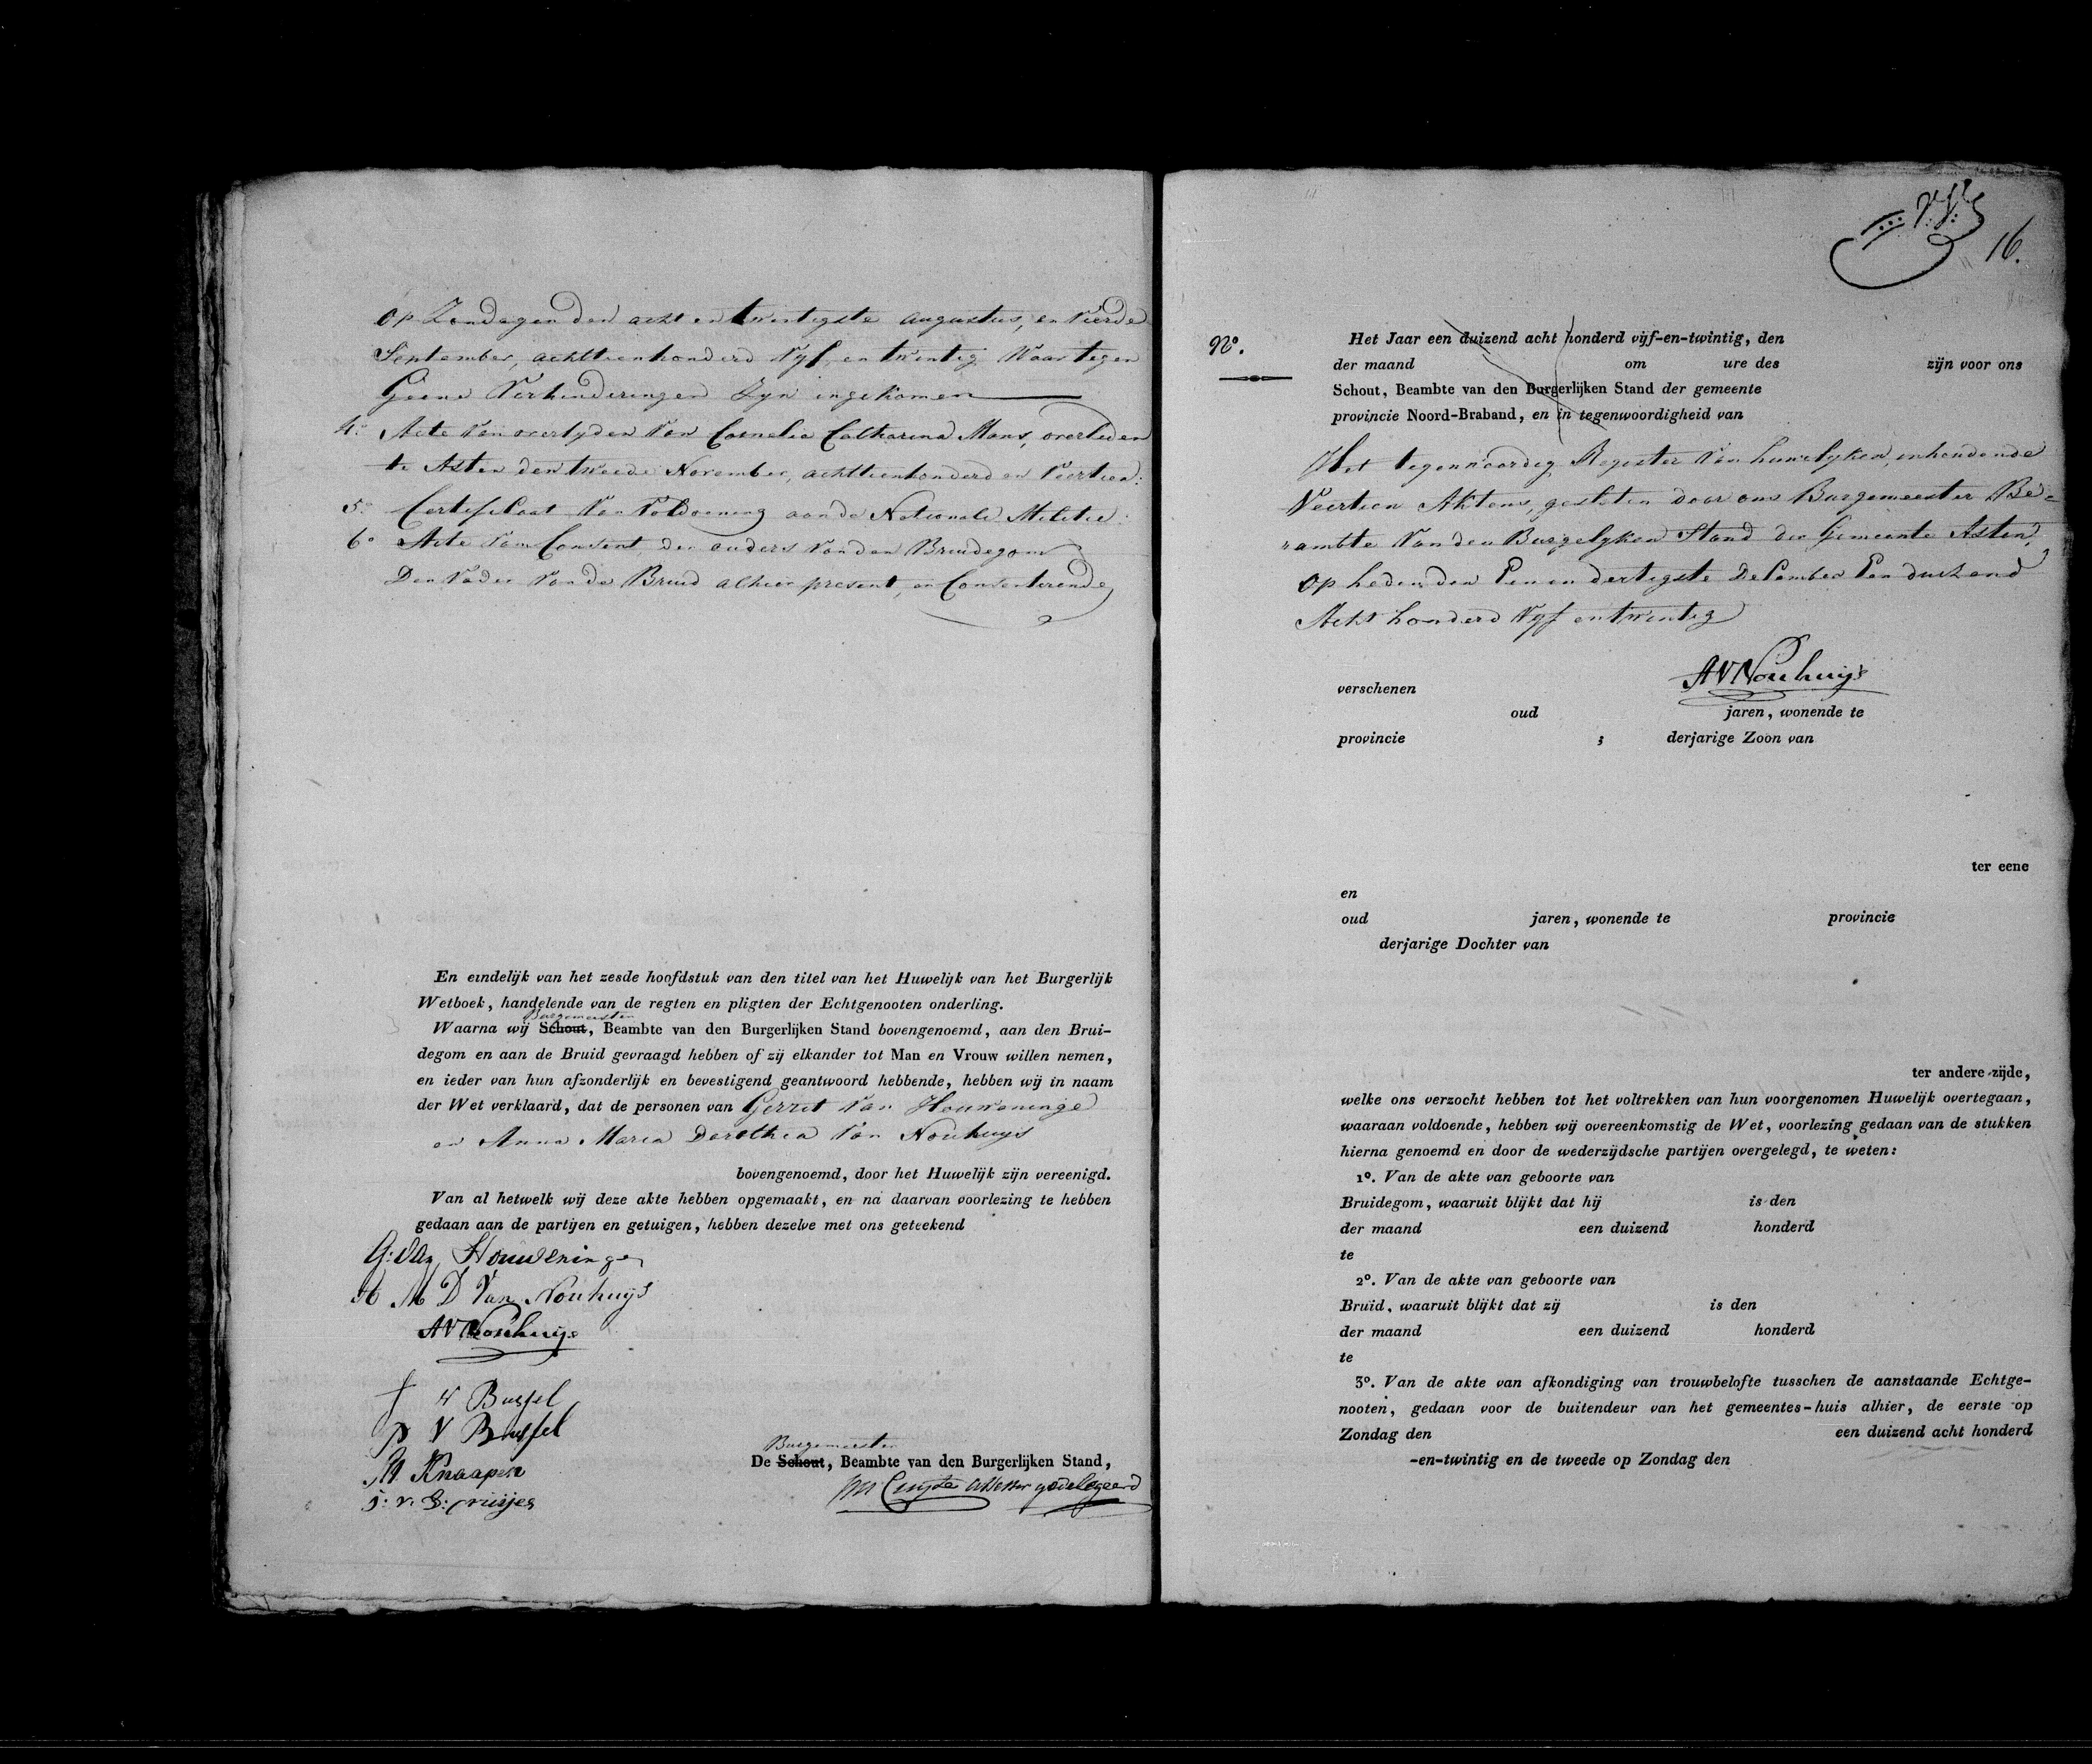 Op Zondagen den acht en twintigste augustus, en Vierde
September, achttienhonderd Vyf en twintig Waar tegen
Geene Verhinderingen Zyn ingekomen
4.° Acte Van overlyden Van Cornelia Catharina Mans, overleden
te Asten den tweede November, achttienhonderd en Veertien:
5.° Certificaat Van Voldoening aan de Nationale Militie:
6.° Acte van Consent der ouders Van den Bruidegom
Den Vader Van de Bruid alhier present, en Consenterende
En eindelijk van het zesde hoofdstuk van den titel van het Huwelijk van het Burgerlijk
Wetboek, handelende van de regten en pligten der Echtgenooten onderling.
Burgemeester
Waarna wij Schout, Beambte van den Burgerlijken Stand bovengenoemd, aan den Brui-
degom en aan de Bruid gevraagd hebben of zij elkander tot Man en Vrouw willen nemen,
en ieder van hun afzonderlijk en bevestigend geantwoord hebbende, hebben wij in naam
der Wet verklaard, dat de personen van Gerret Van Houweninge
en Anna Maria Dorothea Van Nouhuys
bovengenoemd, door het Huwelijk zijn vereenigd.
Van al hetwelk wij deze akte hebben opgemaakt, en na daarvan voorlezing te hebben
gedaan aan de partijen en getuigen, hebben dezelve met ons geteekend
G: van Houweninge
A M D Van Nouhuijs
AVNouhuijs
V Bussel
P V Bussel
M Knaapen
Burgemeester
De Schout, Beambte van den Burgerlijken Stand,
assessor gedelegeerd
16.
N°.
Het Jaar een duizend acht honderd vijf-en-twintig, den
der maand om ure des zijn voor ons
Schout, Beambte van den Burgerlijken Stand der gemeente
provincie Noord-Braband, en in tegenwoordigheid van
Het tegenwoordig Register Van huwelyken, inhoudende
Veertien Aktens, gesloten door ons Burgemeester Be=
"ambte Van den Burgelyken Stand der Gemeente Asten,
op heden den Een en dertigste December Een duizend
Acht honderd Vyf en twintig
AVNouhuijs
verschenen
oud jaren, wonende te
provincie ; derjarige Zoon van
ter eene
en
oud jaren, wonende te provincie
derjarige Dochter van
ter andere zijde,
welke ons verzocht hebben tot het voltrekken van hun voorgenomen Huwelijk overtegaan,
waaraan voldoende, hebben wij overeenkomstig de Wet, voorlezing gedaan van de stukken
hierna genoemd en door de wederzijdsche partijen overgelegd, te weten:
1°. Van de akte van geboorte van
Bruidegom, waaruit blijkt dat hij is den
der maand een duizend honderd
te
2°. Van de akte van geboorte van
Bruid, waaruit blijkt dat zij is den
der maand een duizend honderd
te
3°. Van de akte van afkondiging van trouwbelofte tusschen de aanstaande Echtge-
nooten, gedaan voor de buitendeur van het gemeentes-huis alhier, de eerste op
Zondag den een duizend acht honderd
-en-twintig en de tweede op Zondag den